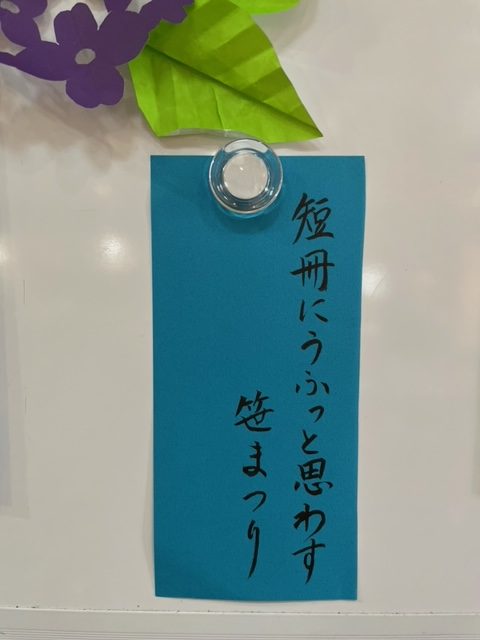 短冊にうふっと思わす
笹まつり